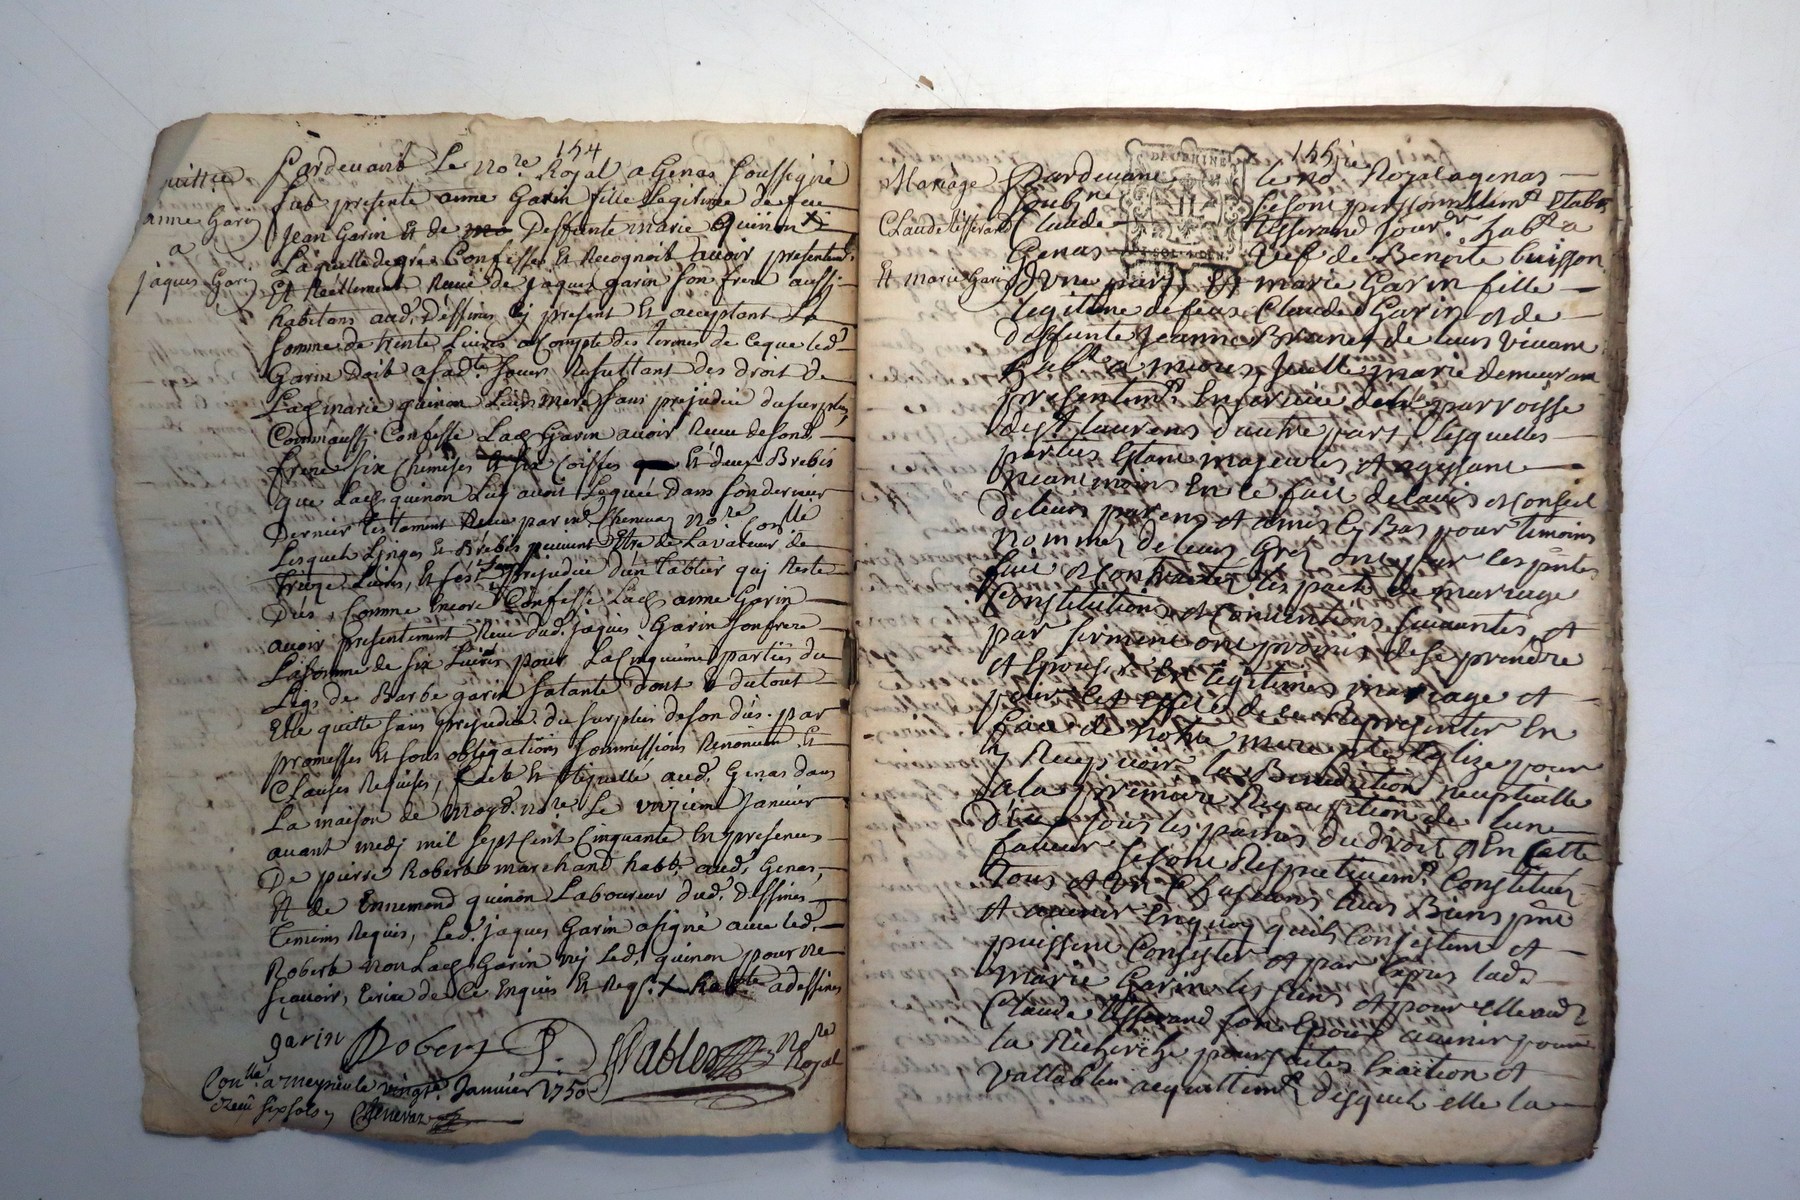 154
quittce
anne Garin
a
jaques Garin
Pardevant Le no.re Royal a Genas soussigné
fut presente anne Garin fille Legitime de feu
Jean Garin Et de Deffunte marie Quinon X
Laquelle de gré a Confessé Et Recognoit avoir presentemt.
Et Reellement Receu de jaques garin son frere aussj
habitans aud. Dessines cy present Et acceptant La
somme de trente Livres a Compte des termes de ceque led.
Garin Doit a sad.te soeur Resultant des droit de
Lad. marie quinon Leur mere sans prejudice du surplus
Comm'aussj Confesse Lad. Garin avoir Receu desond.
frere six Chemises coiffes Et deux Brebis
que Lad. quinon Luj avoit Leguée Dans son dernier
Dernier testament Receu par me. Chenevaz no.re
Lesquels Linges Et Brebis peuvent Etre de La valeur de
Livres, Et sans prejudice d'un tablier quj Reste
Dus, Comme Encore Confesse Lad. anne Garin
avoir presentement Receu dud. jaques Garin son frere
La somme de six Livres pour La Cinquieme parties du
Legs de Barbe garin sa tante dont du tout
Elle quitte sans prejudice du surplus de son dus. par
promesses Et sous obligations soummissions Renonciat. Et
Clauses Requises, fait Et stipullé aud. Genas dans
La maison de moyd. no.re Le vinzieme Janvier
avant medj mil sept Cent Cinquante En presences
De pierre Robert marchand habt. aud. Genas,
Et de Ennemond quinon Laboureur dud. Dessines
temoins Requis, Led. jaques Garin a signé avec led.
Robert non Lad. Garin nj Led. quinon pour ne
sçavoir, Ecrire de Ce Enquis Et Reqs. X hab.te a dessines
garin Robert no.re Royal
Con.llé a meyrieu le vingt. Janvier 1750
Receu six sols Chenevaz
155
Mariage
Claude tisserand
Et marie Garin
Pardevant le no.re Royal a genas
soubne. se sont personnellemt. Etablis
Claude tisserand jour.er hab.t a
Genas Vef de Benoite buisson
d'vne part, Et marie Garin fille
legitime de feus Claude Garin et de
deffunte Jeanne de leurs vivant
hab.t a mions, quelle marie demeurant
presentem.t En service parroisse
de S.t laurens d'autre part, lesquelles
parties Estant majeures, et agissant
neantmoins En ce fait de l'avis et Conseil
de leurs parens et amis Cy Bas pour temoins
nommez de leurs Gré, ont par les pntes
fait et Contracter les pacte de mariage
Constitutions et Conventions suivantes, et
par serment ont promis de se prendre
et Epouser En legitimes mariage et
pour les effets de ce se presenter En
face de notre mere Ste Eglize pour
y Reçevoir la Benediction nuptialle
a la premiere Requisition de l'une
d'Eux sous les peines du droit, et En Cette
faveur se sont Respectivem.t Constitués
tous et Vn Chascuns leurs Biens pnt
et avenir En quoy quils Consistent et
puissent Consister et par Expres lad.
marie Garin les siens et pour elle aud.
Claude tisserand son Epoux avenir pour
la Recherche poursuites Exaction et
Vallables acquittem.t desquels elle la